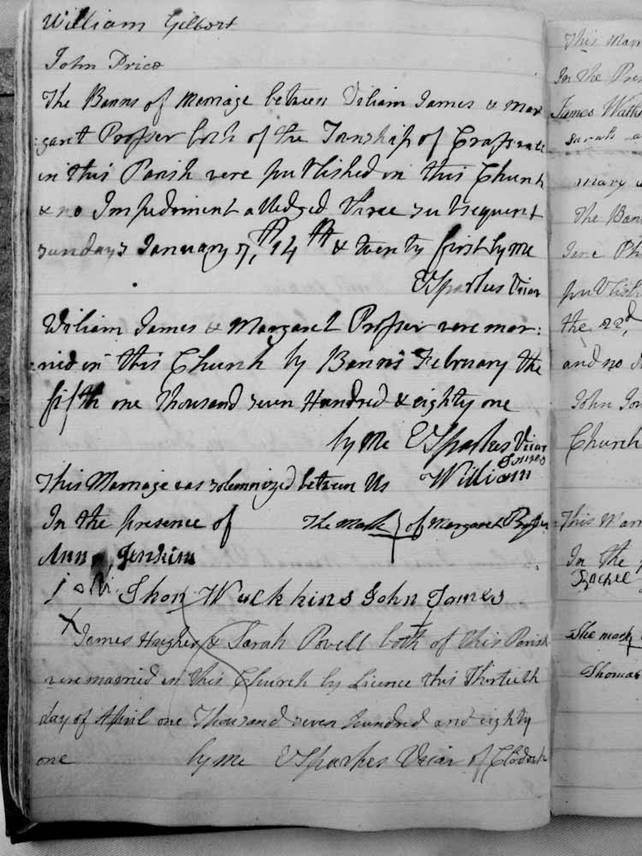 William Gilbert
John Price
The Banns of Marriage between William James & Mar
garet Prosser both of the Township of Craswall
in this Parish were published in this Church
& no Impediment alledged Three subsequent
sundays January 7, th 14 th & twenty first by me
E Sparkes Vicar
William James & Margaret Prosser were mar:
ried in this Church by Banns February the
fifth one Thousand seven Hundred & eighty one
by me E Sparkes Vicar
This Marriage was solemnized between Us William James
In the presence of The Mark of Margaret Prosser
Ann Jenkins
John James
James & Sarah Powell both of this Parish
were married in this Church by Licence this Thirtieth
day of April one Thousand seven hundred and eighty
one by me E Sparkes Vicar of Clodock
This Mar
In the Pres
James Watk
Sarah
Mary
The Ban
publish
the 22d
and no
John Jon
Church
This Mar
In the p
The mark
Thomas